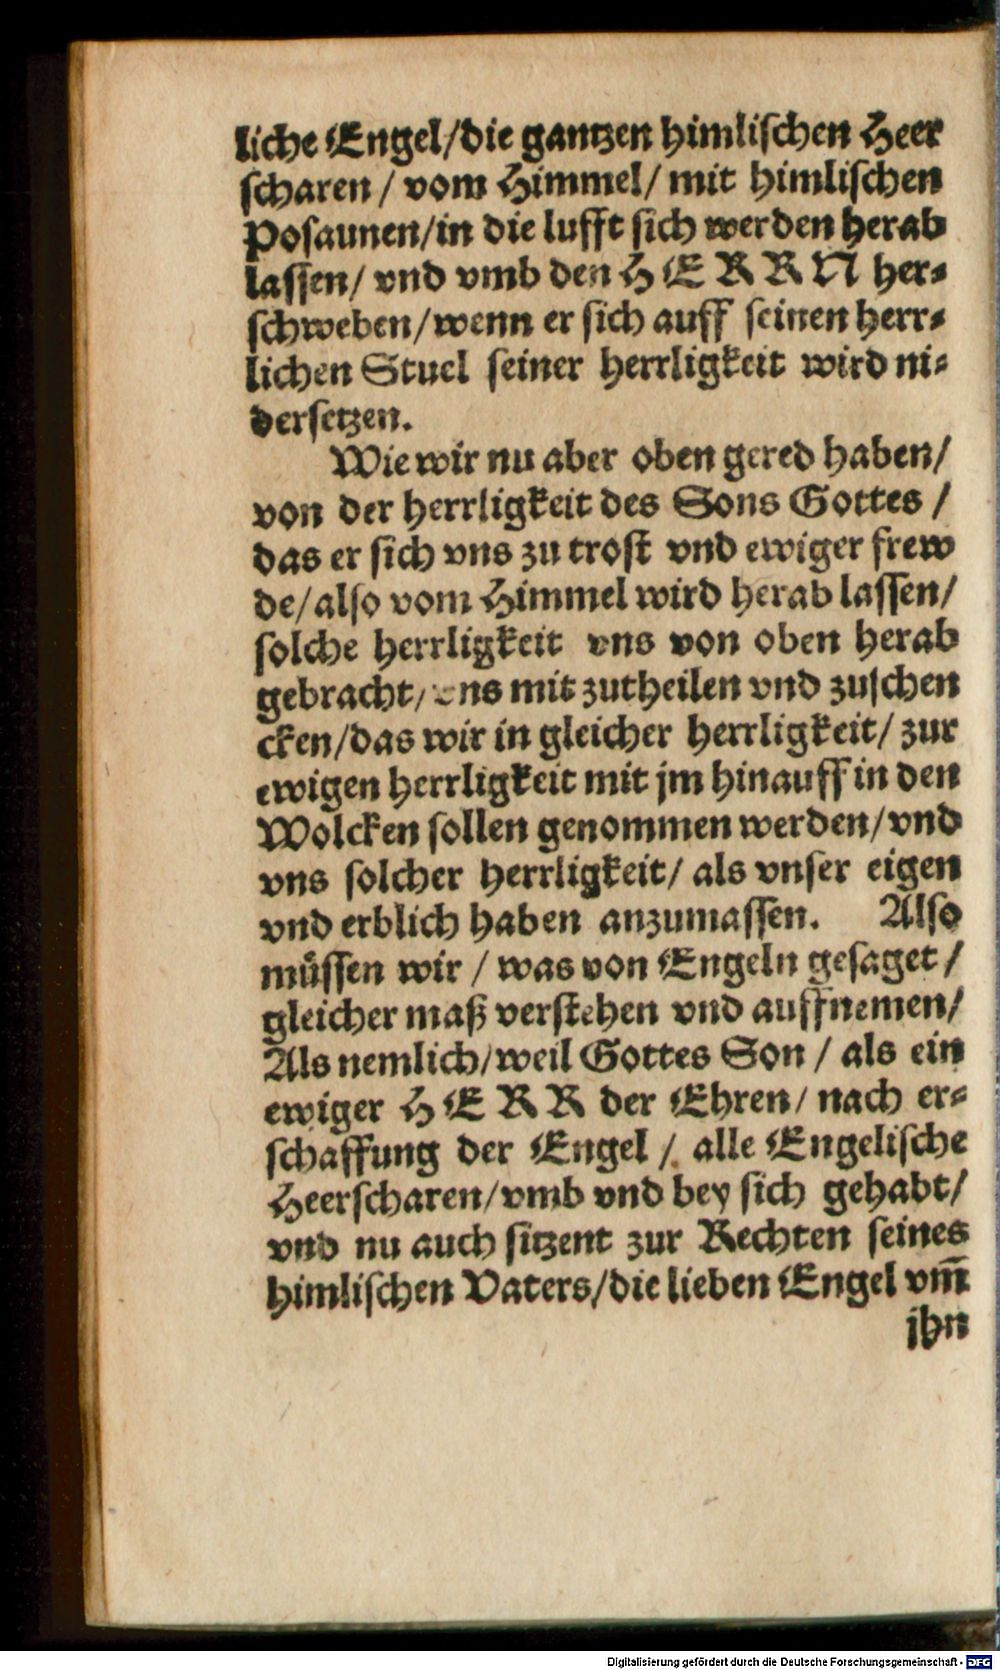 liche Engel/die gantzen himlischen Heer
scharen / vom Himmel/ mit himlischen
Posaunen/in die lufft sich werden herab
lassen/ vnd vmb den HERRN her⸗
schweben/wenn er sich auff seinen herr⸗
lichen Stuel seiner herrligkeit wird ni⸗
dersetzen.
Wie wir nu aber oben gered haben/
von der herrligkeit des Sons Gottes /
das er sich vns zu trost vnd ewiger frew
de/also vom Himmel wird herab lassen/
solche herrligkeit vns von oben herab
gebracht/vns mit zutheilen vnd zuschen
cken/das wir in gleicher herrligkeit/ zur
ewigen herrligkeit mit jm hinauff in den
Wolcken sollen genommen werden/vnd
vns solcher herrligkeit/ als vnser eigen
vnd erblich haben anzumassen. Also
müssen wir / was von Engeln gesaget /
gleicher maß verstehen vnd auffnemen/
Als nemlich/weil Gottes Son / als ein
ewiger HERR der Ehren/ nach er⸗
schaffung der Engel /. alle Engelische
Heerscharen/vmb vnd bey sich gehabt/
vnd nu auch sitzent zur Rechten seines
himlischen Vaters/die lieben Engel vm̄
ihn
Digitalisierung gefördert durch die Deutsche Forschungsgemeinschaft - DFG